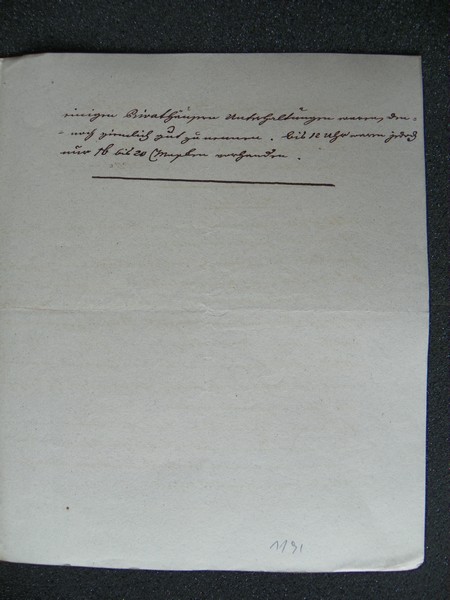 einigen Privathäusern Unterhaltungen waren, den-
-noch ziemlich gut zu nennen. bis 12 Uhr waren jedoch
nur 16 bis 20 Masken vorhanden.
1/91